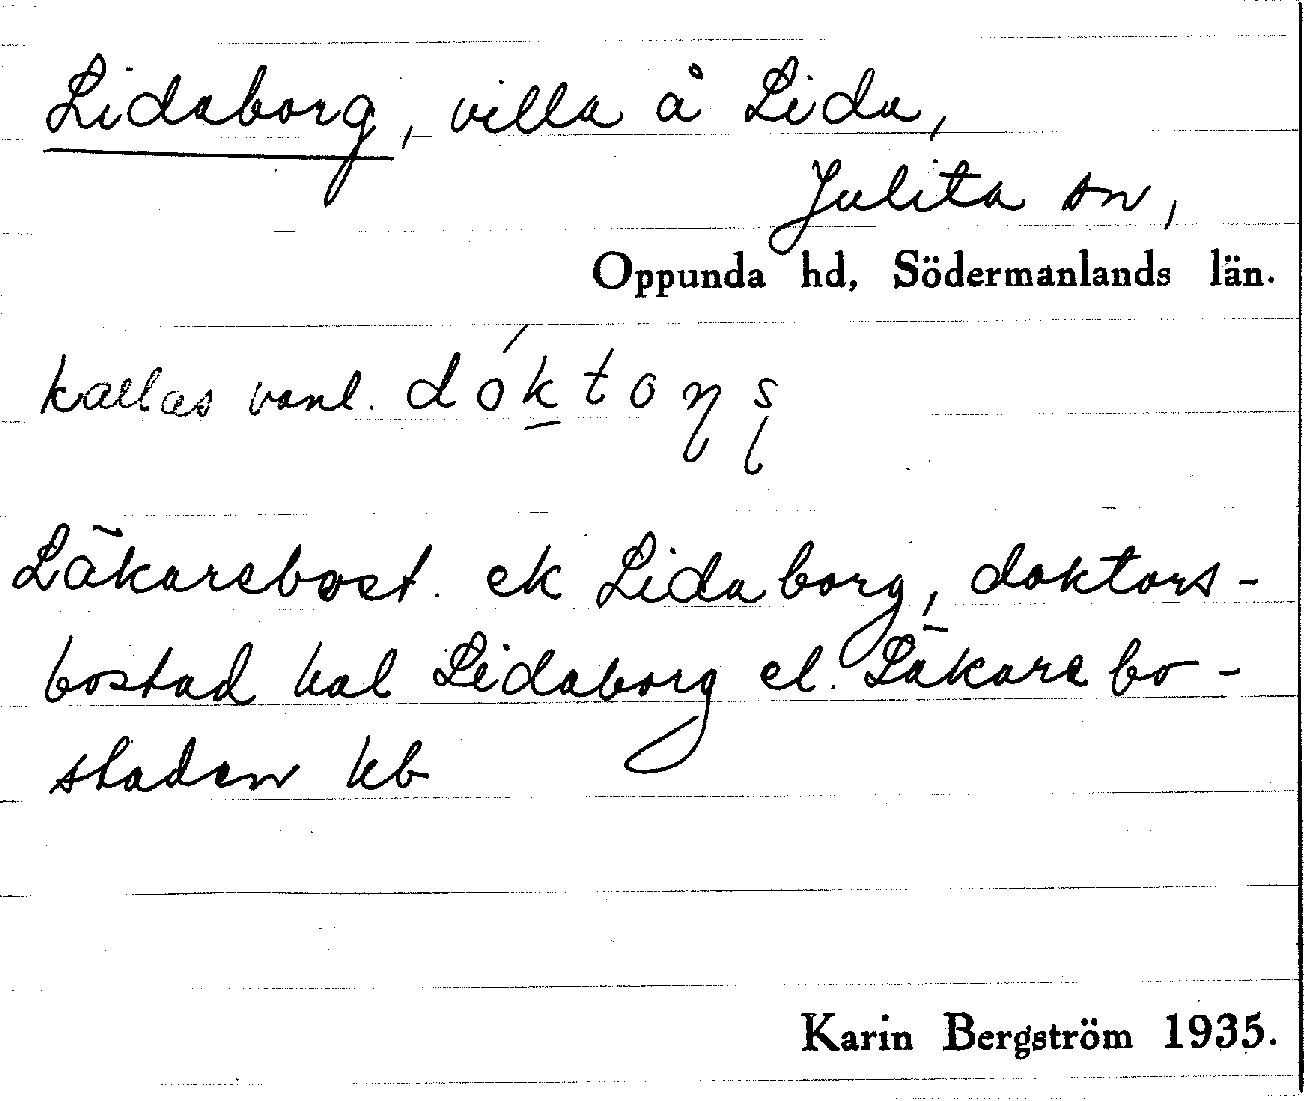 Lidaborg, villa å Lida,
Julita sn,
Oppunda hd, Södermanlands län.
kallas vanl. dóktoṇs
Läkarebost. ek Lidaborg, doktors-
bostad hal Lidaborg el. Läkarebo-
staden kb
Karin Bergström 1935.